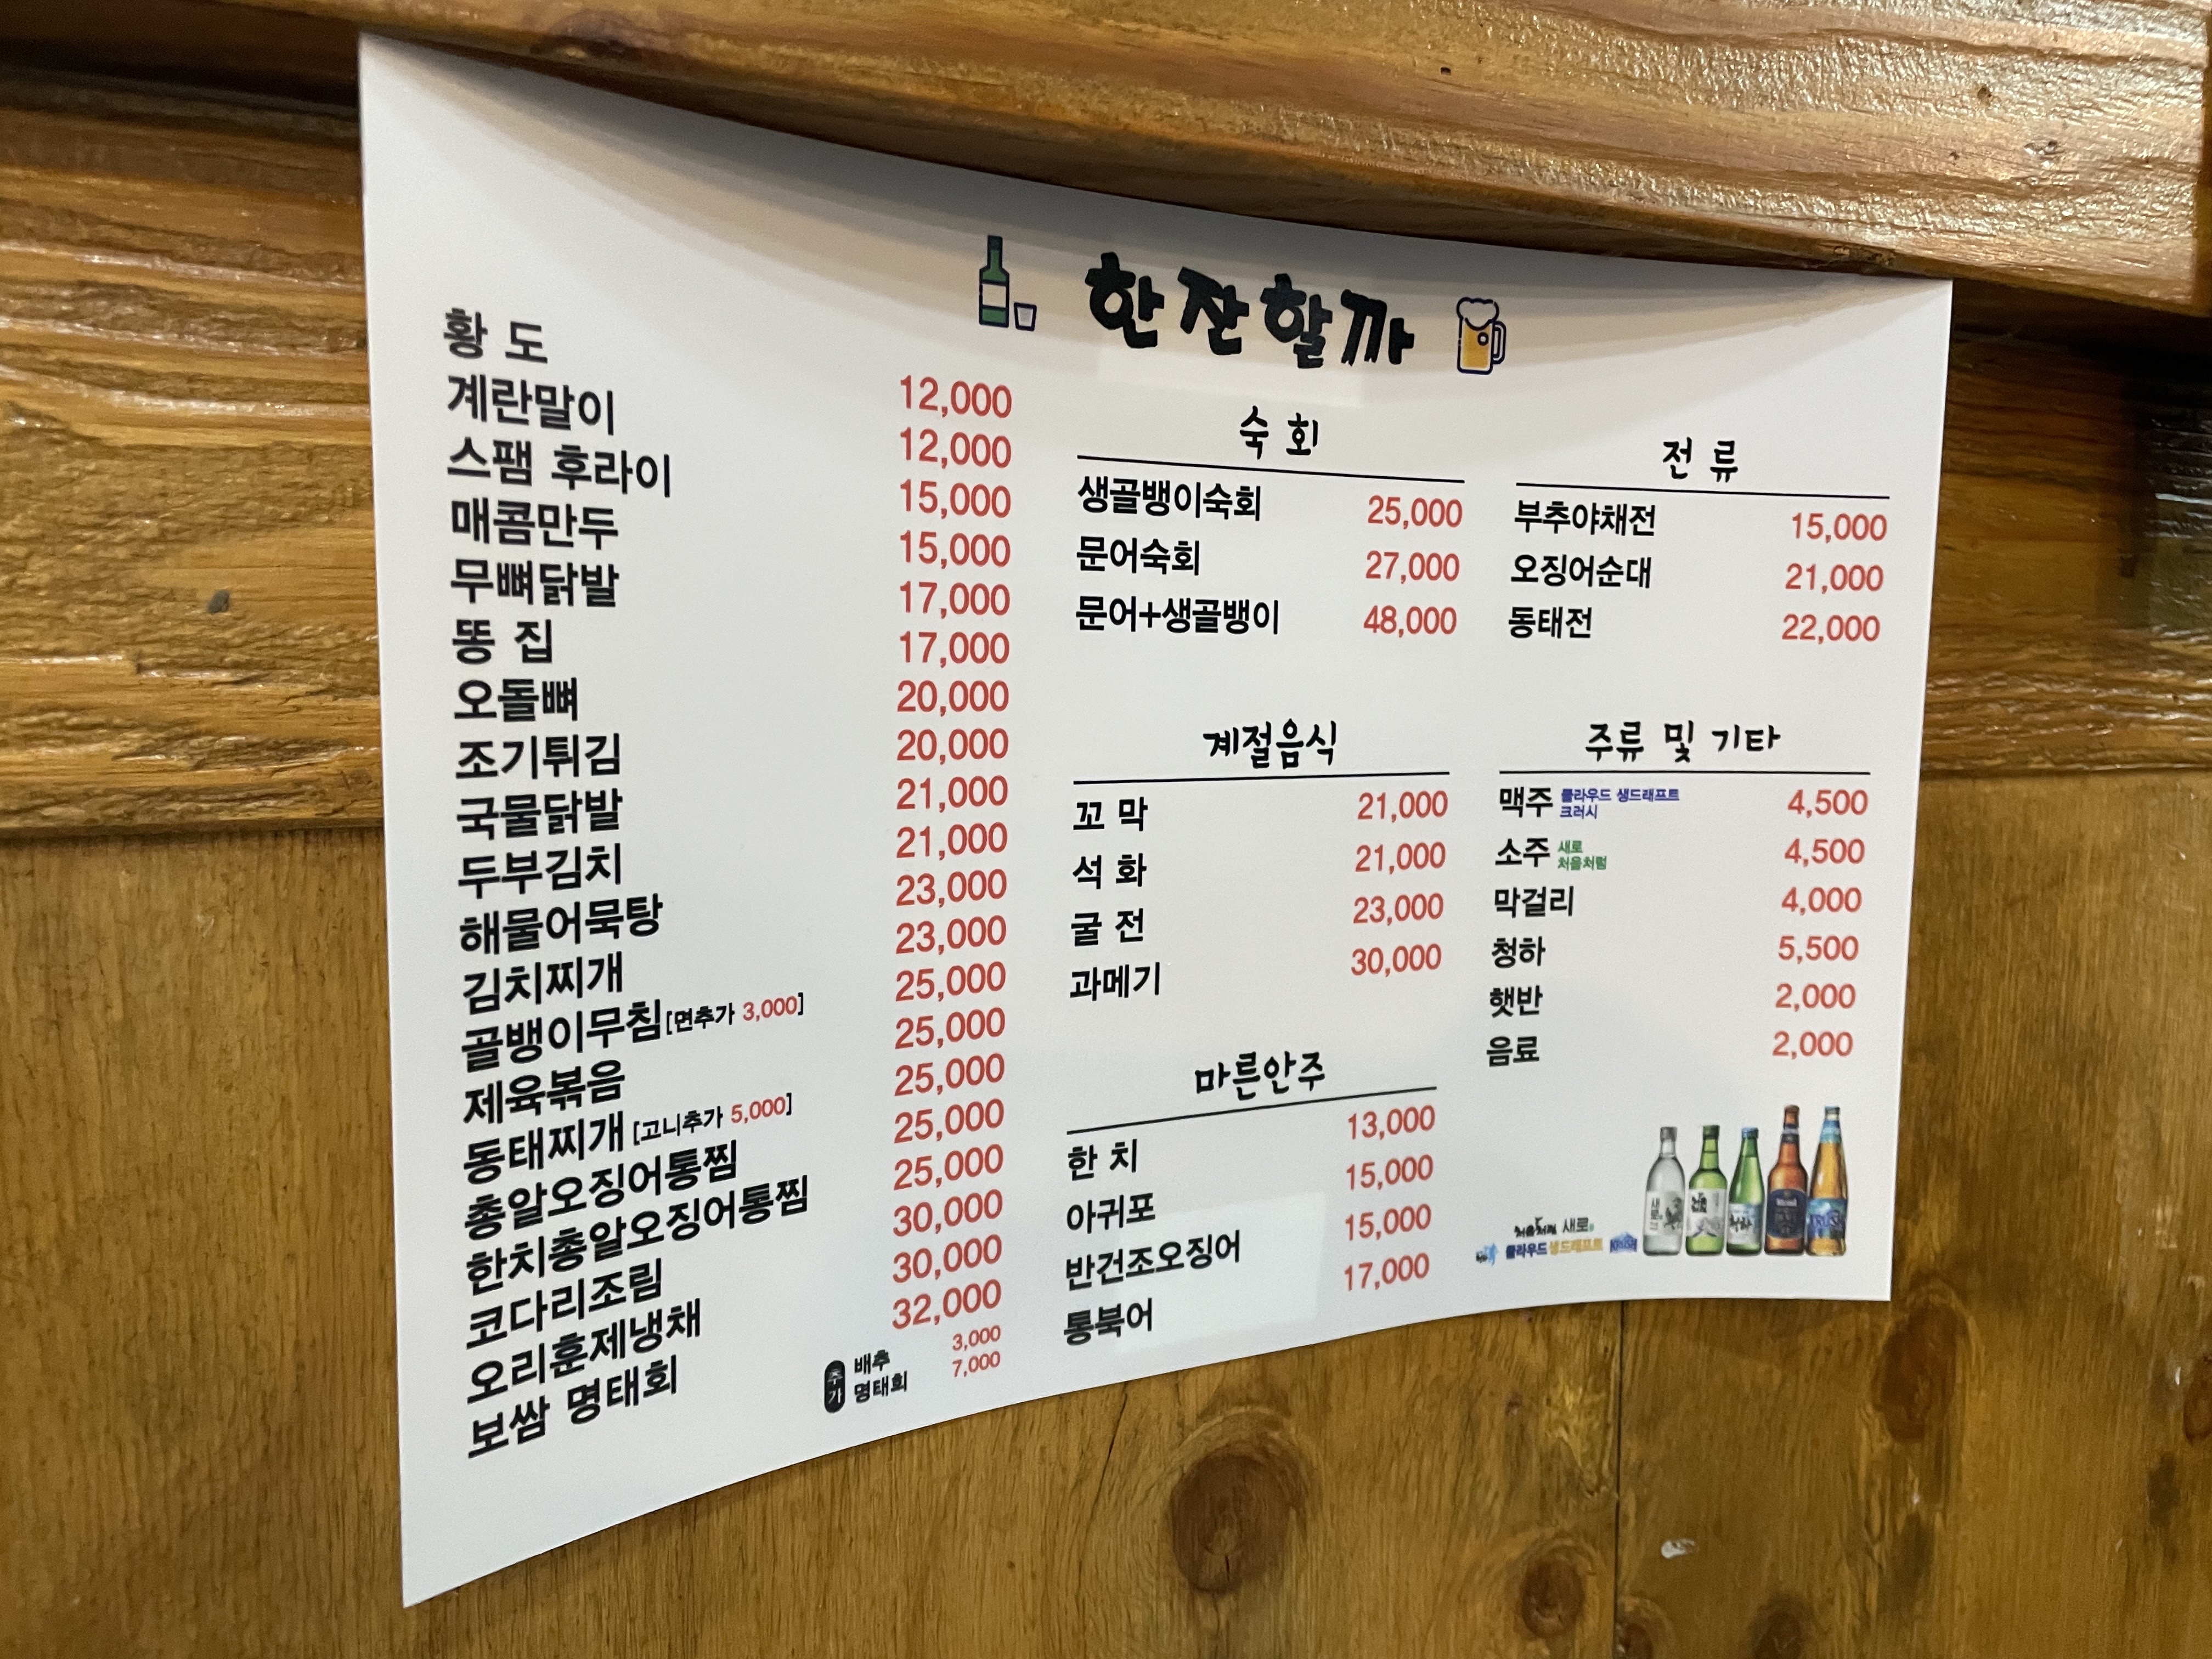 한잔할까
황 도 12,000
계란말이 12,000
스팸 후라이 15,000
매콤만두 15,000
무뼈닭발 17,000
똥 집 17,000
오돌뼈 20,000
조기튀김 20,000
국물닭발 21,000
두부김치 21,000
해물어묵탕 23,000
김치찌개 23,000
골뱅이무침[면추가 3,000] 25,000
제육볶음 25,000
동태찌개 [고니추가 5,000] 25,000
총알오징어통찜 25,000
한치총알오징어통찜 25,000
코다리조림 30,000
오리훈제냉채 30,000
보쌈 명태회 32,000
추가
배추 3,000
명태회 7,000
숙 회
생골뱅이숙회 25,000
문어숙회 27,000
문어+생골뱅이 48,000
계절음식
꼬 막 21,000
석 화 21,000
굴 전 23,000
과메기 30,000
마른안주
한 치 13,000
아귀포 15,000
반건조오징어 15,000
통북어 17,000
전 류
부추야채전 15,000
오징어순대 21,000
동태전 22,000
주류 및 기타
맥주 클라우드 생드래프트 4,500
크러시
소주 새로 4,500
처음처럼
막걸리 4,000
청하 5,500
햇반 2,000
음료 2,000
처음처럼 새로
클라우드 생드래프트 KRUSH
새로
청하
KRUSH